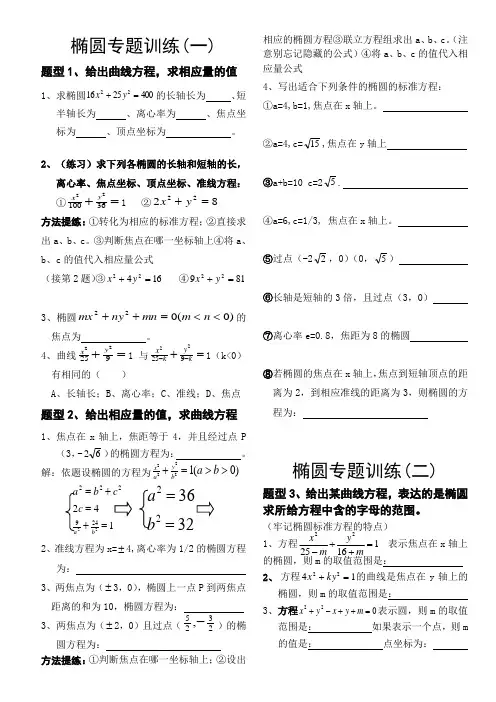 椭圆专题训练(一)
题型1、给出曲线方程，求相应量的值
1、求椭圆16x²+25y²=400的长轴长为　、短
半轴长为　、离心率为　、焦点坐
标为　、顶点坐标为　。
2、（练习）求下列各椭圆的长轴和短轴的长，
离心率、焦点坐标、顶点坐标、准线方程：
①x²/100+y²/36=1 ②2x²+y²=8
方法提练：①转化为相应的标准方程；②直接求
出a、b、c。③判断焦点在哪一坐标轴上④将a、
b、c的值代入相应量公式
(接第2题)③x²+4y²=16 ④9x²+y²=81
3、椭圆mx²+ny²+mn=0(m<n<0)的
焦点为　。
4、曲线x²/25+y²/9=1 与x²/(25-k)+y²/(9-k)=1(k<0)
有相同的（　）
A、长轴长；B、离心率；C、准线；D、焦点
题型2、给出相应量的值，求曲线方程
1、焦点在x轴上，焦距等于4，并且经过点P
（3，-2√6）的椭圆方程为：　。
解：依题设椭圆的方程为x²/a²+y²/b²=1(a>b>0)
a²=b²+c²
2c=4
9/a²+24/b²=1
a²=36
b²=32
2、准线方程为x=±4,离心率为1/2的椭圆方程
为：
3、两焦点为（±3，0），椭圆上一点P到两焦点
距离的和为10，椭圆方程为：
3、两焦点为（±2，0）且过点（5/2,-3/2）的椭
圆方程为：
方法提练：①判断焦点在哪一坐标轴上；②设出
相应的椭圆方程③联立方程组求出a、b、c。（注
意别忘记隐藏的公式）④将a、b、c的值代入相
应量公式
4、写出适合下列条件的椭圆的标准方程：
①a=4,b=1,焦点在x轴上。
②a=4,c=√15,焦点在y轴上
③a+b=10 c=2√5.
④a=6,c=1/3, 焦点在x轴上。
⑤过点（-2√2，0）（0，√5）
⑥长轴是短轴的3倍，且过点（3，0）
⑦离心率e=0.8，焦距为8的椭圆
⑧若椭圆的焦点在x轴上,焦点到短轴顶点的距
离为2，到相应准线的距离为3，则椭圆的方
程为：
椭圆专题训练(二)
题型3、给出某曲线方程，表达的是椭圆
求所给方程中含的字母的范围。
（牢记椭圆标准方程的特点）
1、方程x²/(25-m)+y²/(16+m)=1 表示焦点在x轴上
的椭圆，则m的取值范围是：
2、方程4x²+ky²=1的曲线是焦点在y轴上的
椭圆，则m的取值范围是：
3、方程x²+y²-x+y+m=0表示圆，则m的取值
范围是：　如果表示一个点，则m
的值是：　点坐标为：